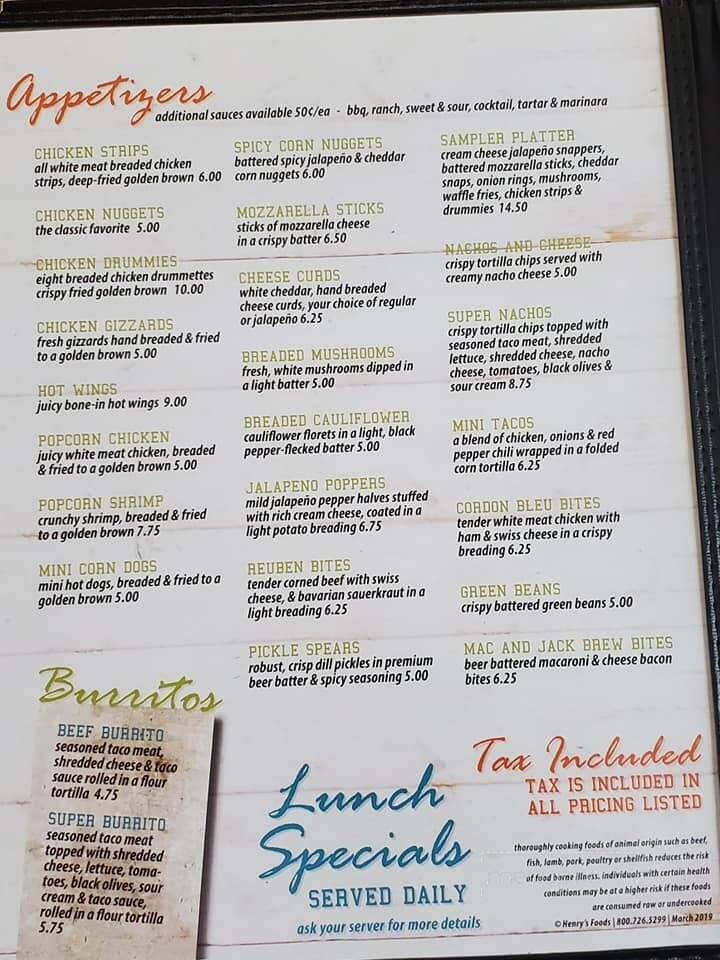 Appetizers
additional sauces available 50¢/ea - bbq, ranch, sweet & sour, cocktail, tartar & marinara
CHICKEN STRIPS
all white meat breaded chicken
strips, deep-fried golden brown 6.00
CHICKEN NUGGETS
the classic favorite 5.00
CHICKEN DRUMMIES
eight breaded chicken drummettes
crispy fried golden brown 10.00
CHICKEN GIZZARDS
fresh gizzards hand breaded & fried
to a golden brown 5.00
HOT WINGS
juicy bone-in hot wings 9.00
POPCORN CHICKEN
juicy white meat chicken, breaded
& fried to a golden brown 5.00
POPCORN SHRIMP
crunchy shrimp, breaded & fried
to a golden brown 7.75
MINI CORN DOGS
mini hot dogs, breaded & fried to a
golden brown 5.00
SPICY CORN NUGGETS
battered spicy jalapeño & cheddar
corn nuggets 6.00
MOZZARELLA STICKS
sticks of mozzarella cheese
in a crispy batter 6.50
CHEESE CURDS
white cheddar, hand breaded
cheese curds, your choice of regular
or jalapeño 6.25
BREADED MUSHROOMS
fresh, white mushrooms dipped in
a light batter 5.00
BREADED CAULIFLOWER
cauliflower florets in a light, black
pepper-flecked batter 5.00
JALAPENO POPPERS
mild jalapeño pepper halves stuffed
with rich cream cheese, coated in a
light potato breading 6.75
REUBEN BITES
tender corned beef with swiss
cheese, & bavarian sauerkraut in a
light breading 6.25
PICKLE SPEARS
robust, crisp dill pickles in premium
beer batter & spicy seasoning 5.00
SAMPLER PLATTER
cream cheese jalapeño snappers,
battered mozzarella sticks, cheddar
snaps, onion rings, mushrooms,
waffle fries, chicken strips &
drummies 14.50
NACHOS AND CHEESE
crispy tortilla chips served with
creamy nacho cheese 5.00
SUPER NACHOS
crispy tortilla chips topped with
seasoned taco meat, shredded
lettuce, shredded cheese, nacho
cheese, tomatoes, black olives &
sour cream 8.75
MINI TACOS
a blend of chicken, onions & red
pepper chili wrapped in a folded
corn tortilla 6.25
CORDON BLEU BITES
tender white meat chicken with
ham & swiss cheese in a crispy
breading 6.25
GREEN BEANS
crispy battered green beans 5.00
MAC AND JACK BREW BITES
beer battered macaroni & cheese bacon
bites 6.25
Burritos
BEEF BURRITO
seasoned taco meat,
shredded cheese & taco
sauce rolled in a flour
tortilla 4.75
SUPER BURRITO
seasoned taco meat
topped with shredded
cheese, lettuce, toma-
toes, black olives, sour
cream & taco sauce,
rolled in a flour tortilla
5.75
Lunch
Specials
SERVED DAILY
ask your server for more details
Tax Included
TAX IS INCLUDED IN
ALL PRICING LISTED
thoroughly cooking foods of animal origin such as beef,
fish, lamb, pork, poultry or shellfish reduces the risk
of food borne illness. individuals with certain health
conditions may be at a higher risk if these foods
are consumed raw or undercooked
© Henry's Foods | 800.726.5299 | March 2019